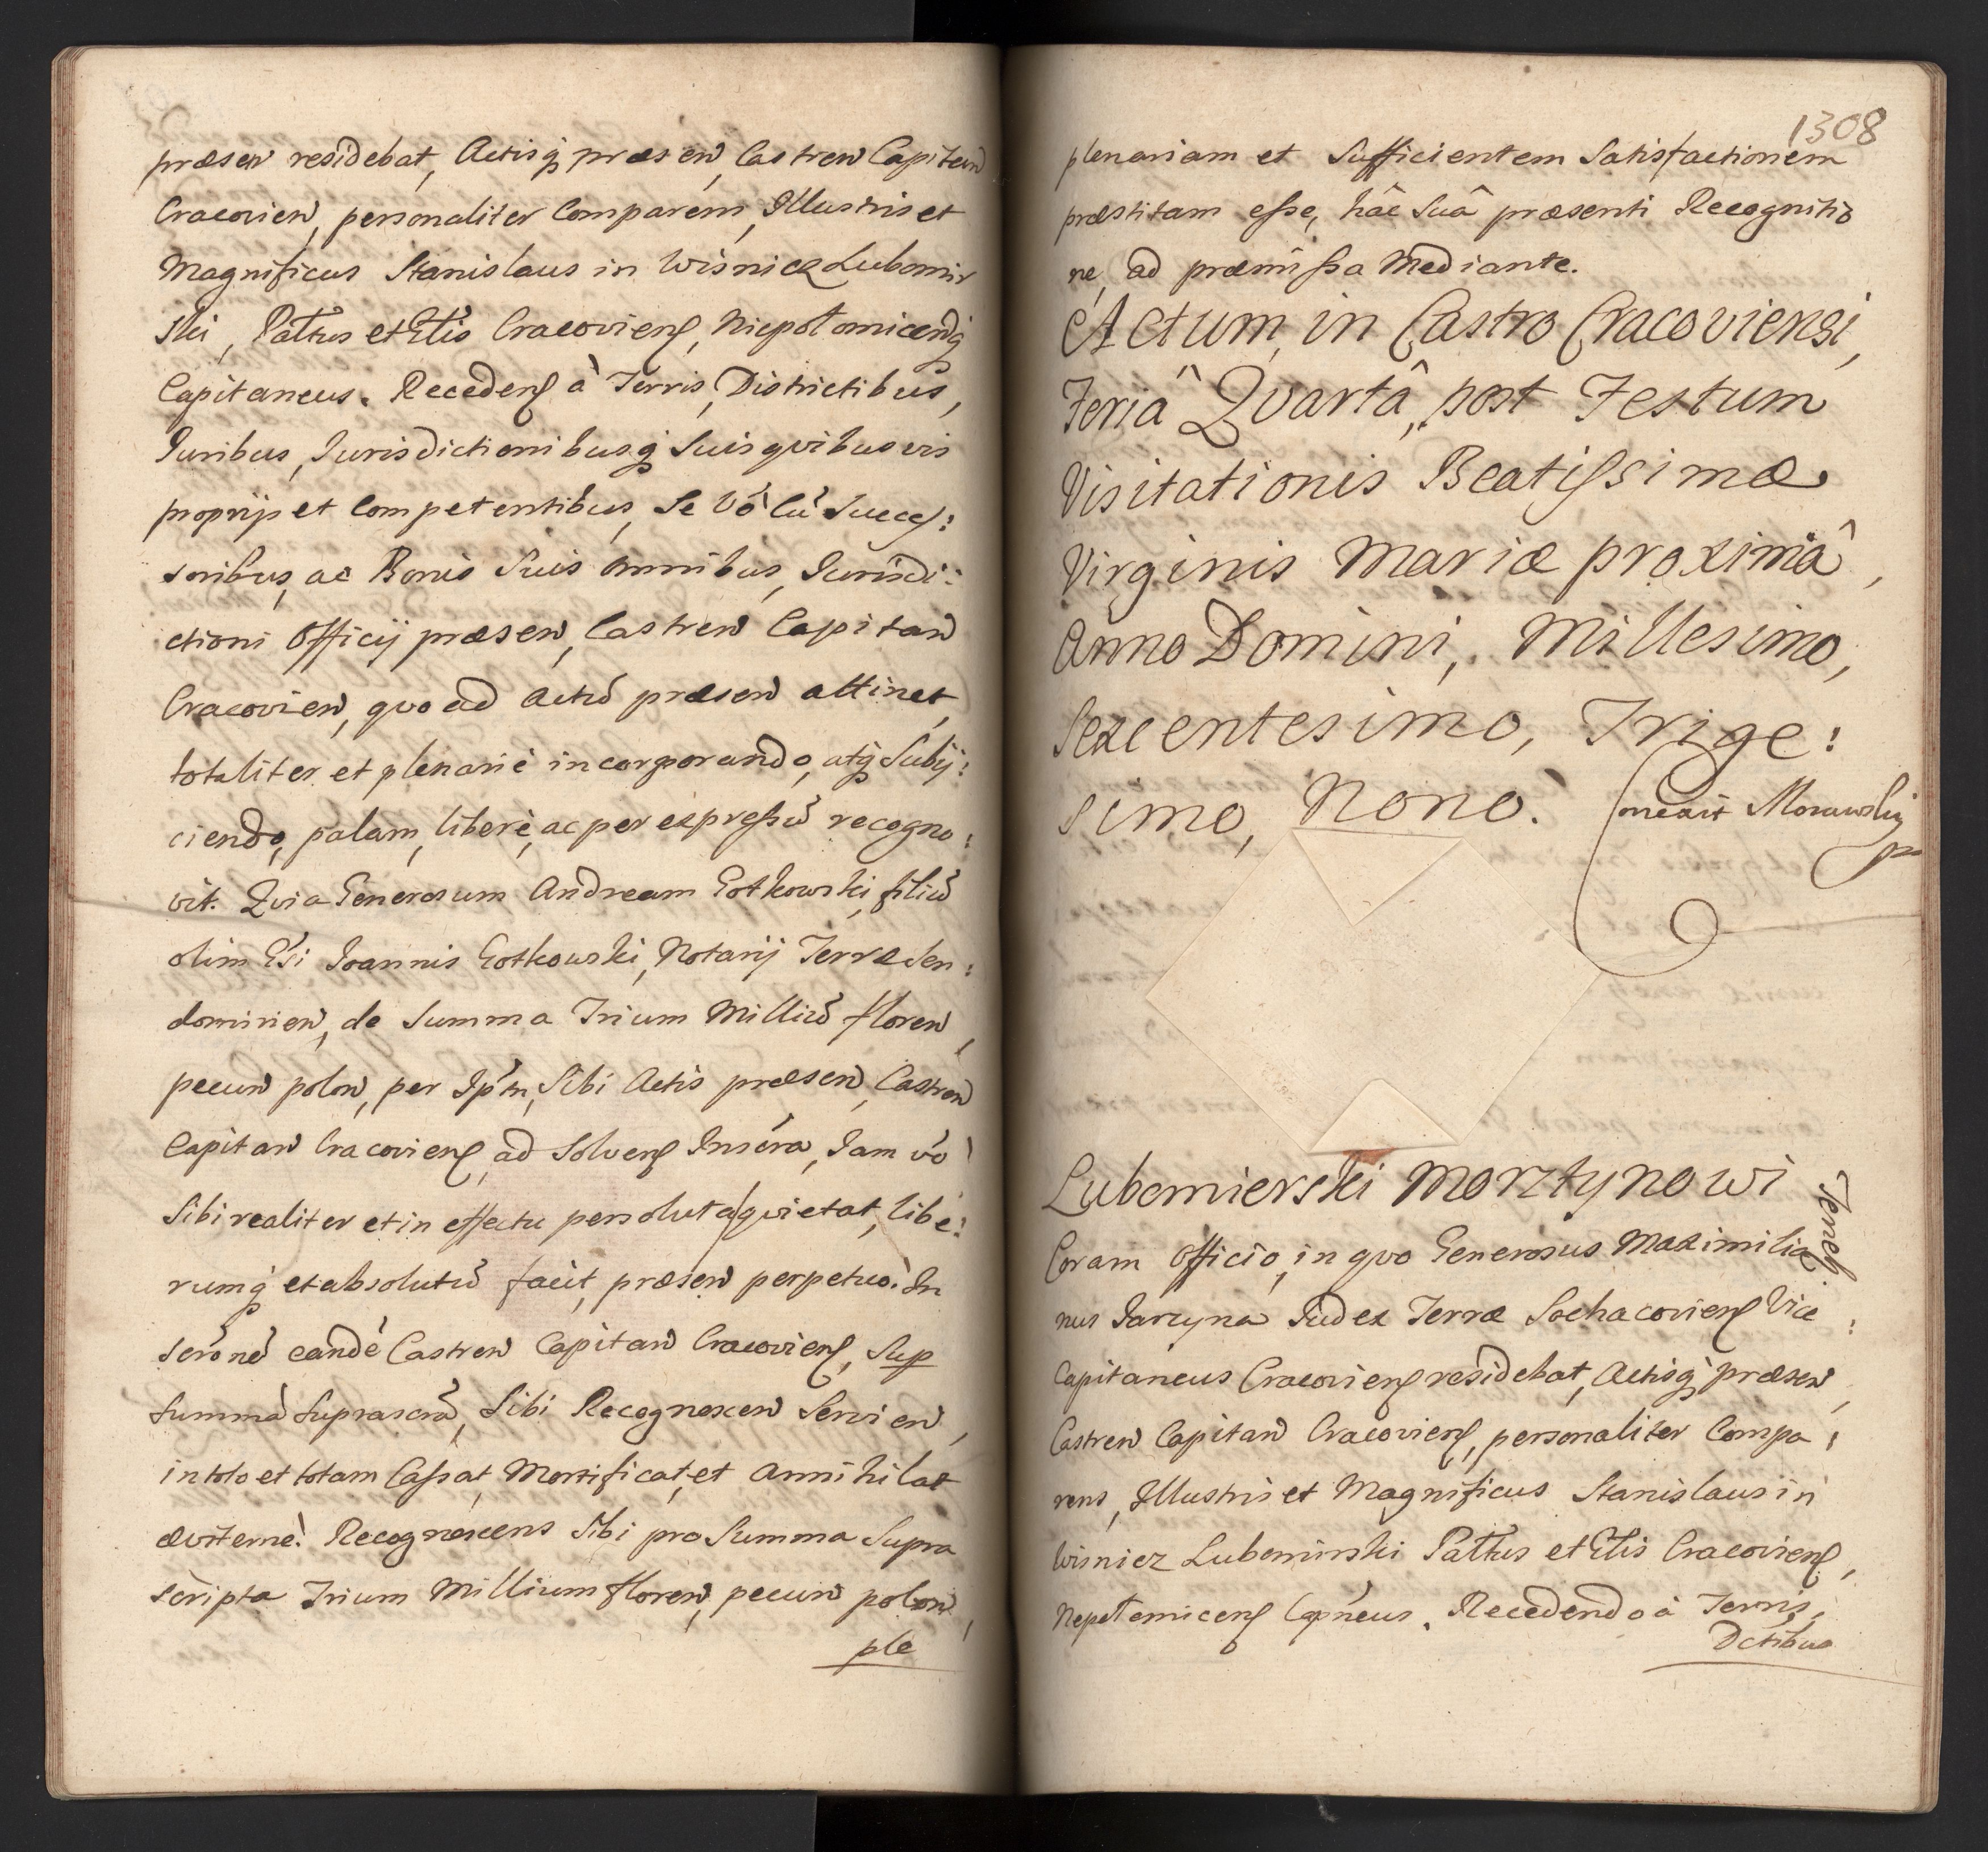 præsen residebat, Actisq præsen, Castren Capitan
Cracovien, personaliter Comparens, Illustris et
Magnificus Stanislaus in Wisnicz Lubomir
ski, Pattus et Gtis Cracoviens, Niepołomicensq
Capitaneus. Recedens à Terris, Districtibus,
Iuribus, Iurisdictionibusq Suis quibusvis
proprijs et Competentibus, Se vō Cū Succes:
soribus, ac Bonis Suis omnibus, Iurisdi:
ctioni Officij præsen, Castren Capitan
Cracovien, quo ad Actū præsen attinet,
totaliter et plenariè incorporando, atq Subij:
ciendo, palam, liberè, ac per expressū recogno:
vit. Quia Generosum Andream Gotkowski, filiū
olim Gsi Ioannis Gotkowski, Notarij Terræ Sen:
domirien, de Summa Trium Milliū floren,
pecun polon, per Ipm, Sibi Actis præsen, Castren
Capitan Cracoviens, ad Solvens Inscra, Iam vō
Sibi realiter et in effectu persoluta, quietat, libe:
rumq et absolutū facit, præsen perpetuò. In
scrōnē eandē Castren Capitan Cracoviens, Sup
Summā Suprascrā, Sibi Recognoscen Servien,
in toto et totam Cassat, Mortificat, et Annihilat
æviternè. Recognoscens Sibi pro Summa Supra
scripta Trium Millium floren, pecun polon,
ple
1308
plenariam et Sufficientem Satisfactionem
præstitam esse, hâc Suâ præsenti Recognitio
ne, ad præmissa Mediante.
Actum, in Castro Cracoviensi,
Feriâ Qvartâ, post Festum
Visitationis Beatissimæ
Virginis Mariæ proximâ,
Anno Domini, Millesimo,
Sexcentesimo, Trige:
simo, Nono.
Lubomierski Morztynowi
Coram Officio, in quo Generosus Maximilia
nus Iarzyna Iudex Terræ Sochacoviens Vice:
Capitaneus Cracoviens residebat, Actisq præsen,
Castren Capitan Cracoviens, personaliter Compa:
rens, Illustris et Magnificus Stanislaus in
Wisnicz Lubomirski Pattus et Gtis Cracoviens,
Nepołomicens Capneus. Recedendo à Terris,
Dctibus